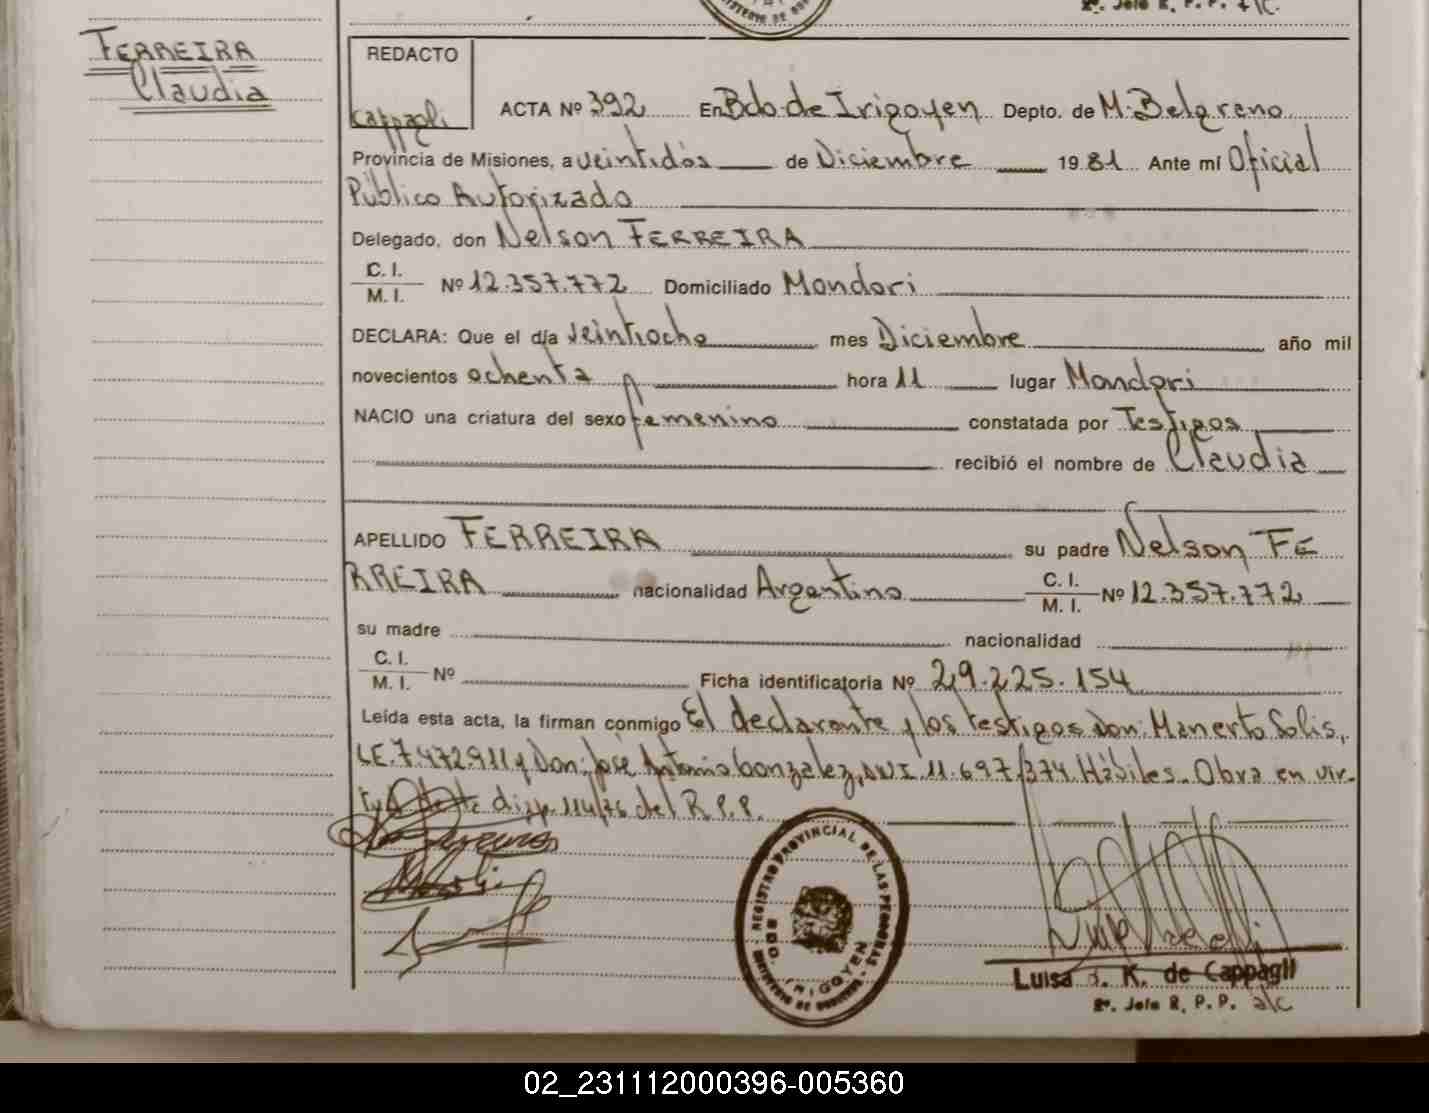 2º. Jefe R. P. P. a/c.
FERREIRA
Claudia
REDACTO
Cappagli
ACTA Nº 392 En Bdo. de Irigoyen Depto. de M. Belgrano
Provincia de Misiones, a veintidós de Diciembre 19 81 Ante mí Oficial
Público Autorizado
Delegado, don Nelson FERREIRA
C. I.
M. I. Nº 12.357.772 Domiciliado Mondori
DECLARA: Que el día veintiocho mes Diciembre año mil
novecientos ochenta hora 11 lugar Mondori
NACIO una criatura del sexo femenino constatada por Testigos
recibió el nombre de Claudia
APELLIDO FERREIRA su padre Nelson FE
RREIRA nacionalidad Argentino C. I. M. I. Nº 12.357.772
su madre nacionalidad
C. I.
M. I. Nº Ficha identificatoria Nº 29.225.154
Leída esta acta, la firman conmigo El declarante y los testigos don: Manerto Solis,
LE.7.472911 y Don: José Antonio Gonzalez, DNI. 11.697/374 Hábiles. Obra en vir-
disp. 114/76 del R.P.P.
REGISTRO PROVINCIAL DE LAS PERSONAS
BDO. IRIGOYEN
MINISTERIO DE GOBIERNO
Luisa K. de Cappagli
2º. Jefe R. P. P. a/c
02_231112000396-005360